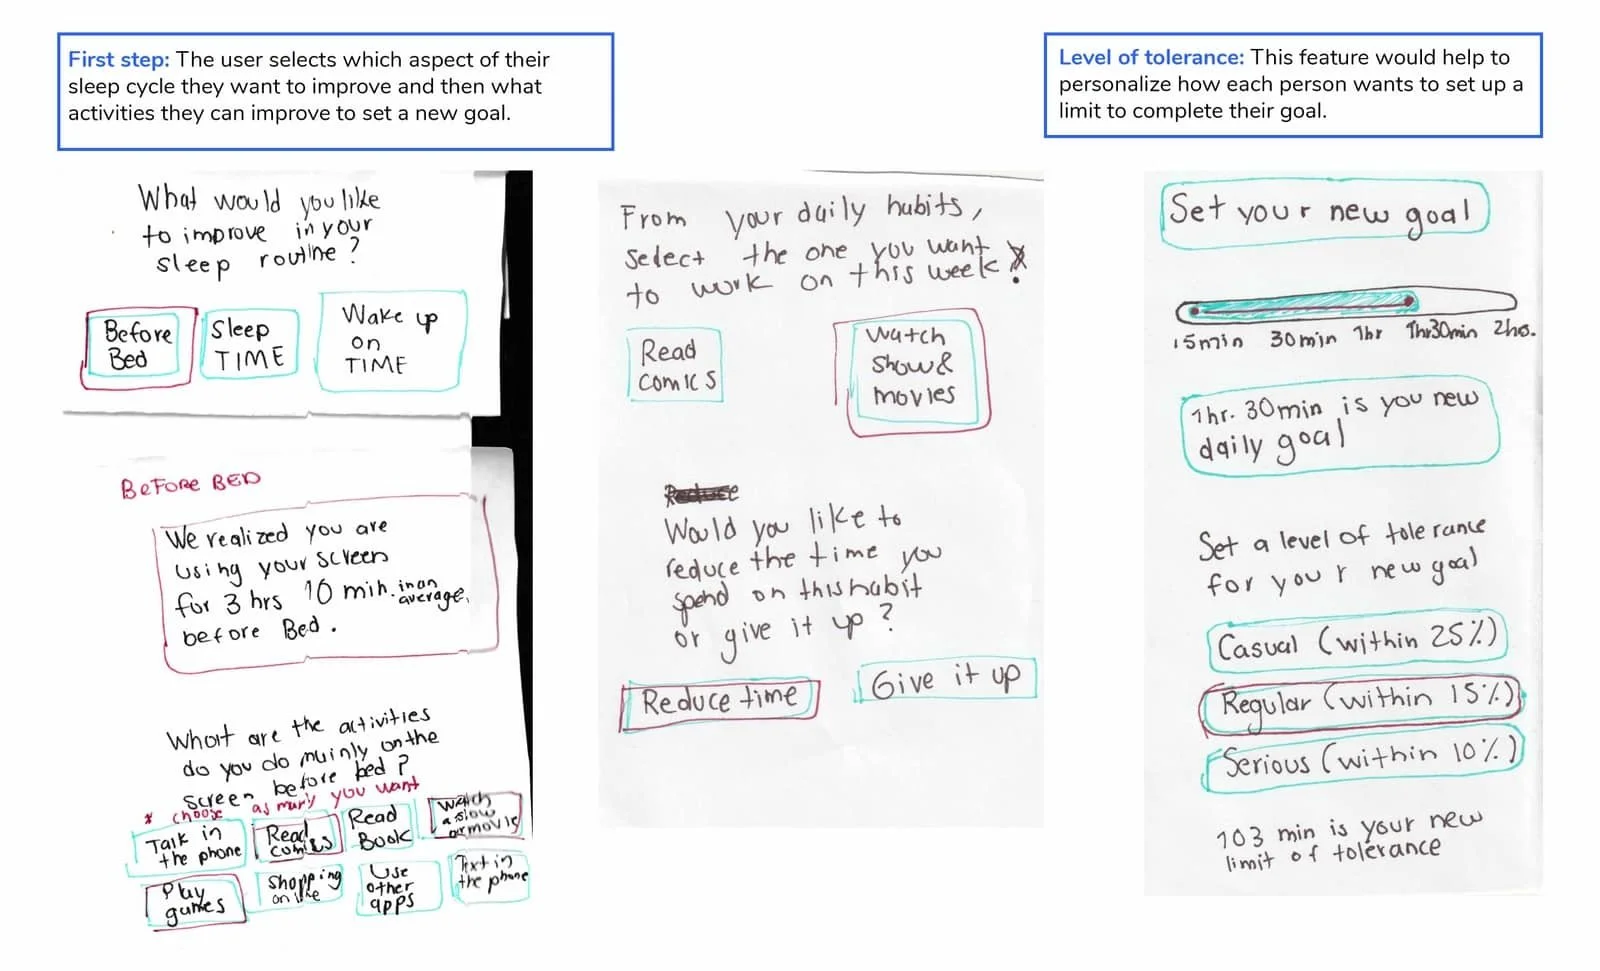 First step: The user selects which aspect of their
sleep cycle they want to improve and then what
activities they can improve to set a new goal.
What would you like
to improve in your
sleep routine?
Before
Bed
Sleep
TIME
Wake up
on
TIME
BEFORE BED
We realized you are
using your screen
for 3 hrs 10 min. in an
average.
before Bed.
What are the activities
do you do mainly on the
screen before bed?
* choose as many you want
Talk in
the phone
Read
comics
Read
Book
Watch
a show
or movie
Play
games
Shopping
online
Use
other
apps
Text in
the phone
From your daily habits,
select the one you want
to work on this week!
Read
comics
Watch
Show &
movies
Reduce
Would you like to
reduce the time you
spend on this habit
or give it up?
Reduce time
Give it up
Level of tolerance: This feature would help to
personalize how each person wants to set up a
limit to complete their goal.
Set your new goal
15min 30min 1hr 1hr30min 2hs.
1hr. 30min is you new
daily goal
Set a level of tolerance
for your new goal
Casual (within 25%)
Regular (within 15%)
Serious (within 10%)
103 min is your new
limit of tolerance